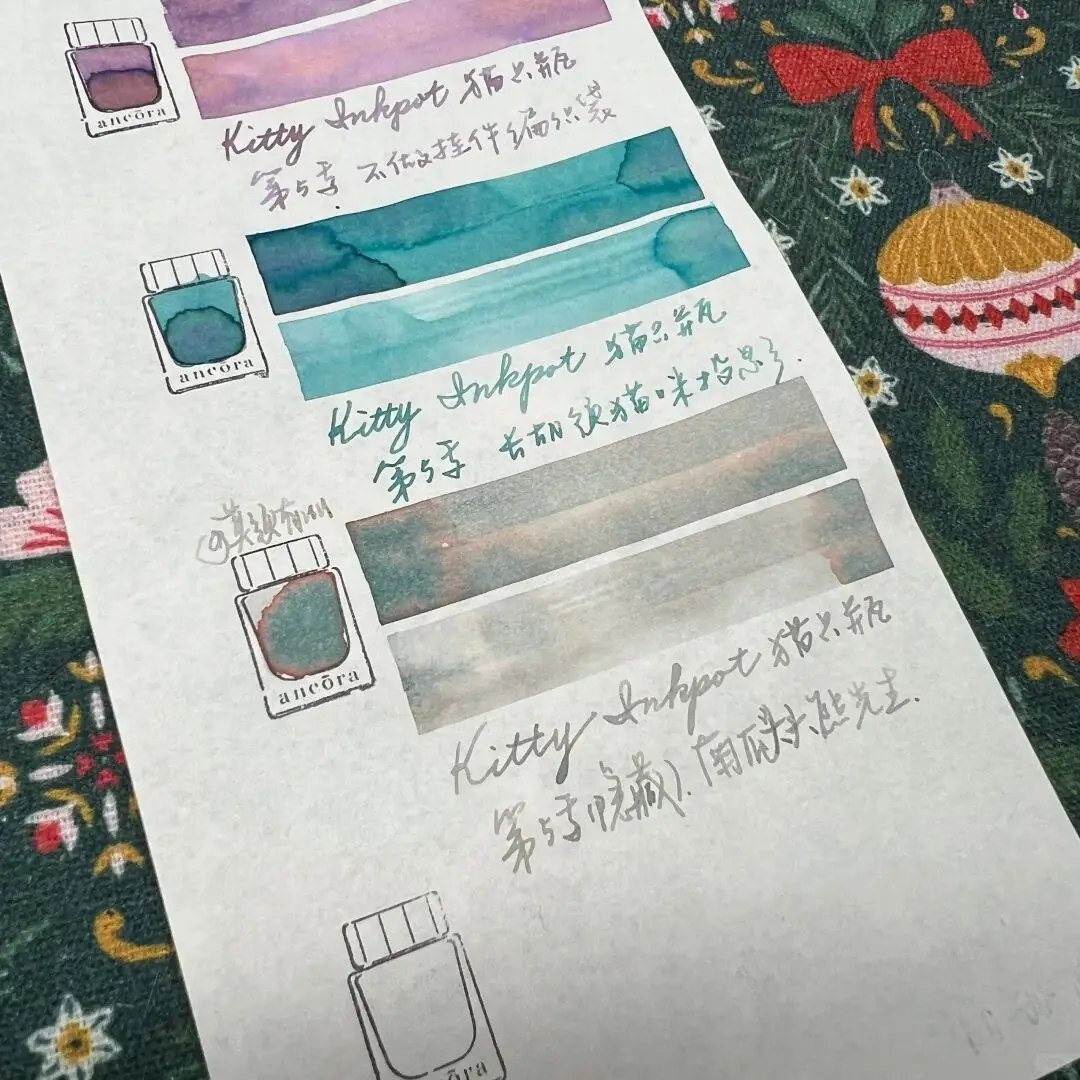 ancōra
Kitty Inkpot 猫只瓶
第5季 不做挂件编织袋
ancōra
Kitty Inkpot 猫只瓶
第5季 长胡须猫咪投影.
ancōra
Kitty Inkpot 猫只瓶
第5季(隐藏). 南瓜头熊先生.
ōra